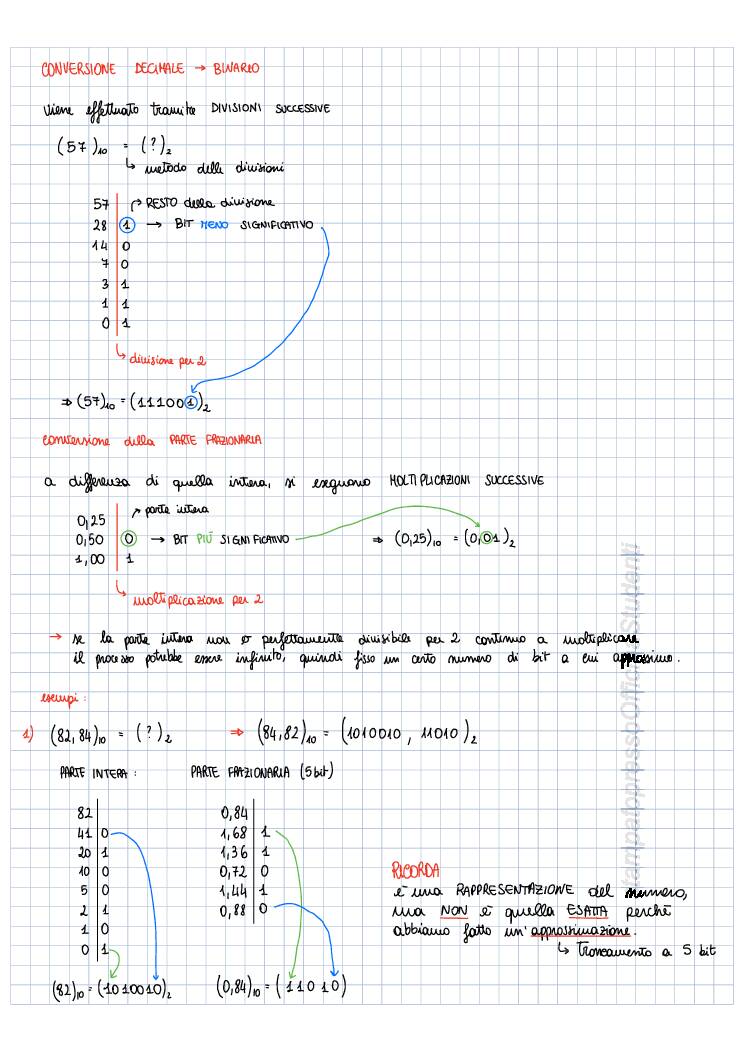 CONVERSIONE DECIMALE → BINARIO
Viene effettuato tramite DIVISIONI SUCCESSIVE
(57)₁₀ = (?)₂
↳ metodo delle divisioni
57 → RESTO della divisione
28 1 → BIT MENO SIGNIFICATIVO
14 0
7 0
3 1
1 1
0 1
↳ divisione per 2
⇒ (57)₁₀ = (111001)₂
conversione della PARTE FRAZIONARIA
a differenza di quella intera, si eseguono MOLTIPLICAZIONI SUCCESSIVE
0,25 ↗ parte intera
0,50 0 → BIT PIÙ SIGNIFICATIVO ⇒ (0,25)₁₀ = (0,01)₂
1,00 1
↳ moltiplicazione per 2
→ se la parte intera non è perfettamente divisibile per 2 continuo a moltiplicare
il processo potrebbe essere infinito, quindi fisso un certo numero di bit a cui approssimo.
esempi:
1) (82,84)₁₀ = (?)₂ ⇒ (84,82)₁₀ = (1010010, 11010)₂
PARTE INTERA:
82
41 0
20 1
10 0
5 0
2 1
1 0
0 1
(82)₁₀ = (1010010)₂
PARTE FRAZIONARIA (5 bit)
0,84
1,68 1
1,36 1
0,72 0
1,44 1
0,88 0
(0,84)₁₀ = (11010)
RICORDA
è una RAPPRESENTAZIONE del numero,
ma NON è quella ESATTA perché
abbiamo fatto un'approssimazione.
↳ Troncamento a 5 bit
StampatopressoOfficinaStudenti